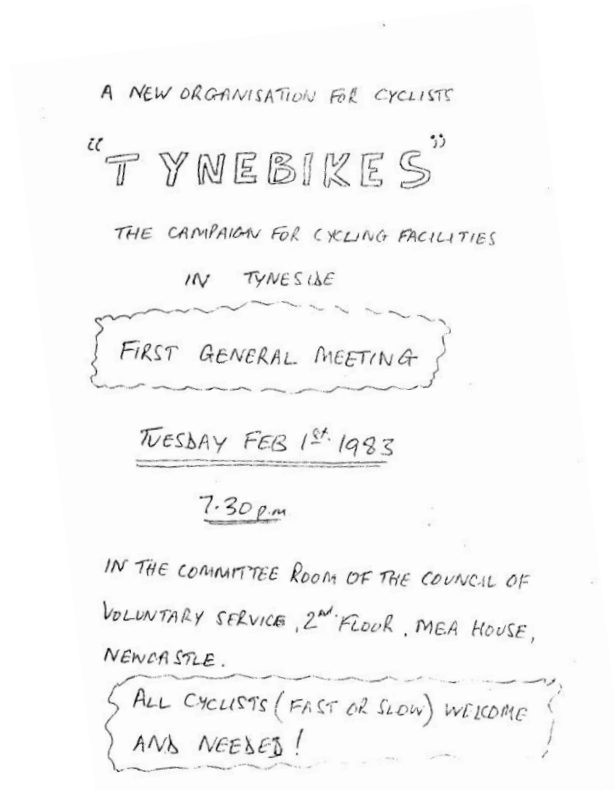 A NEW ORGANISATION FOR CYCLISTS
"TYNEBIKES"
THE CAMPAIGN FOR CYCLING FACILITIES
IN TYNESIDE
FIRST GENERAL MEETING
TUESDAY FEB 1st. 1983
7.30 p.m.
IN THE COMMITTEE ROOM OF THE COUNCIL OF
VOLUNTARY SERVICE, 2nd. FLOOR, MEA HOUSE,
NEWCASTLE.
ALL CYCLISTS (FAST OR SLOW) WELCOME
AND NEEDED!